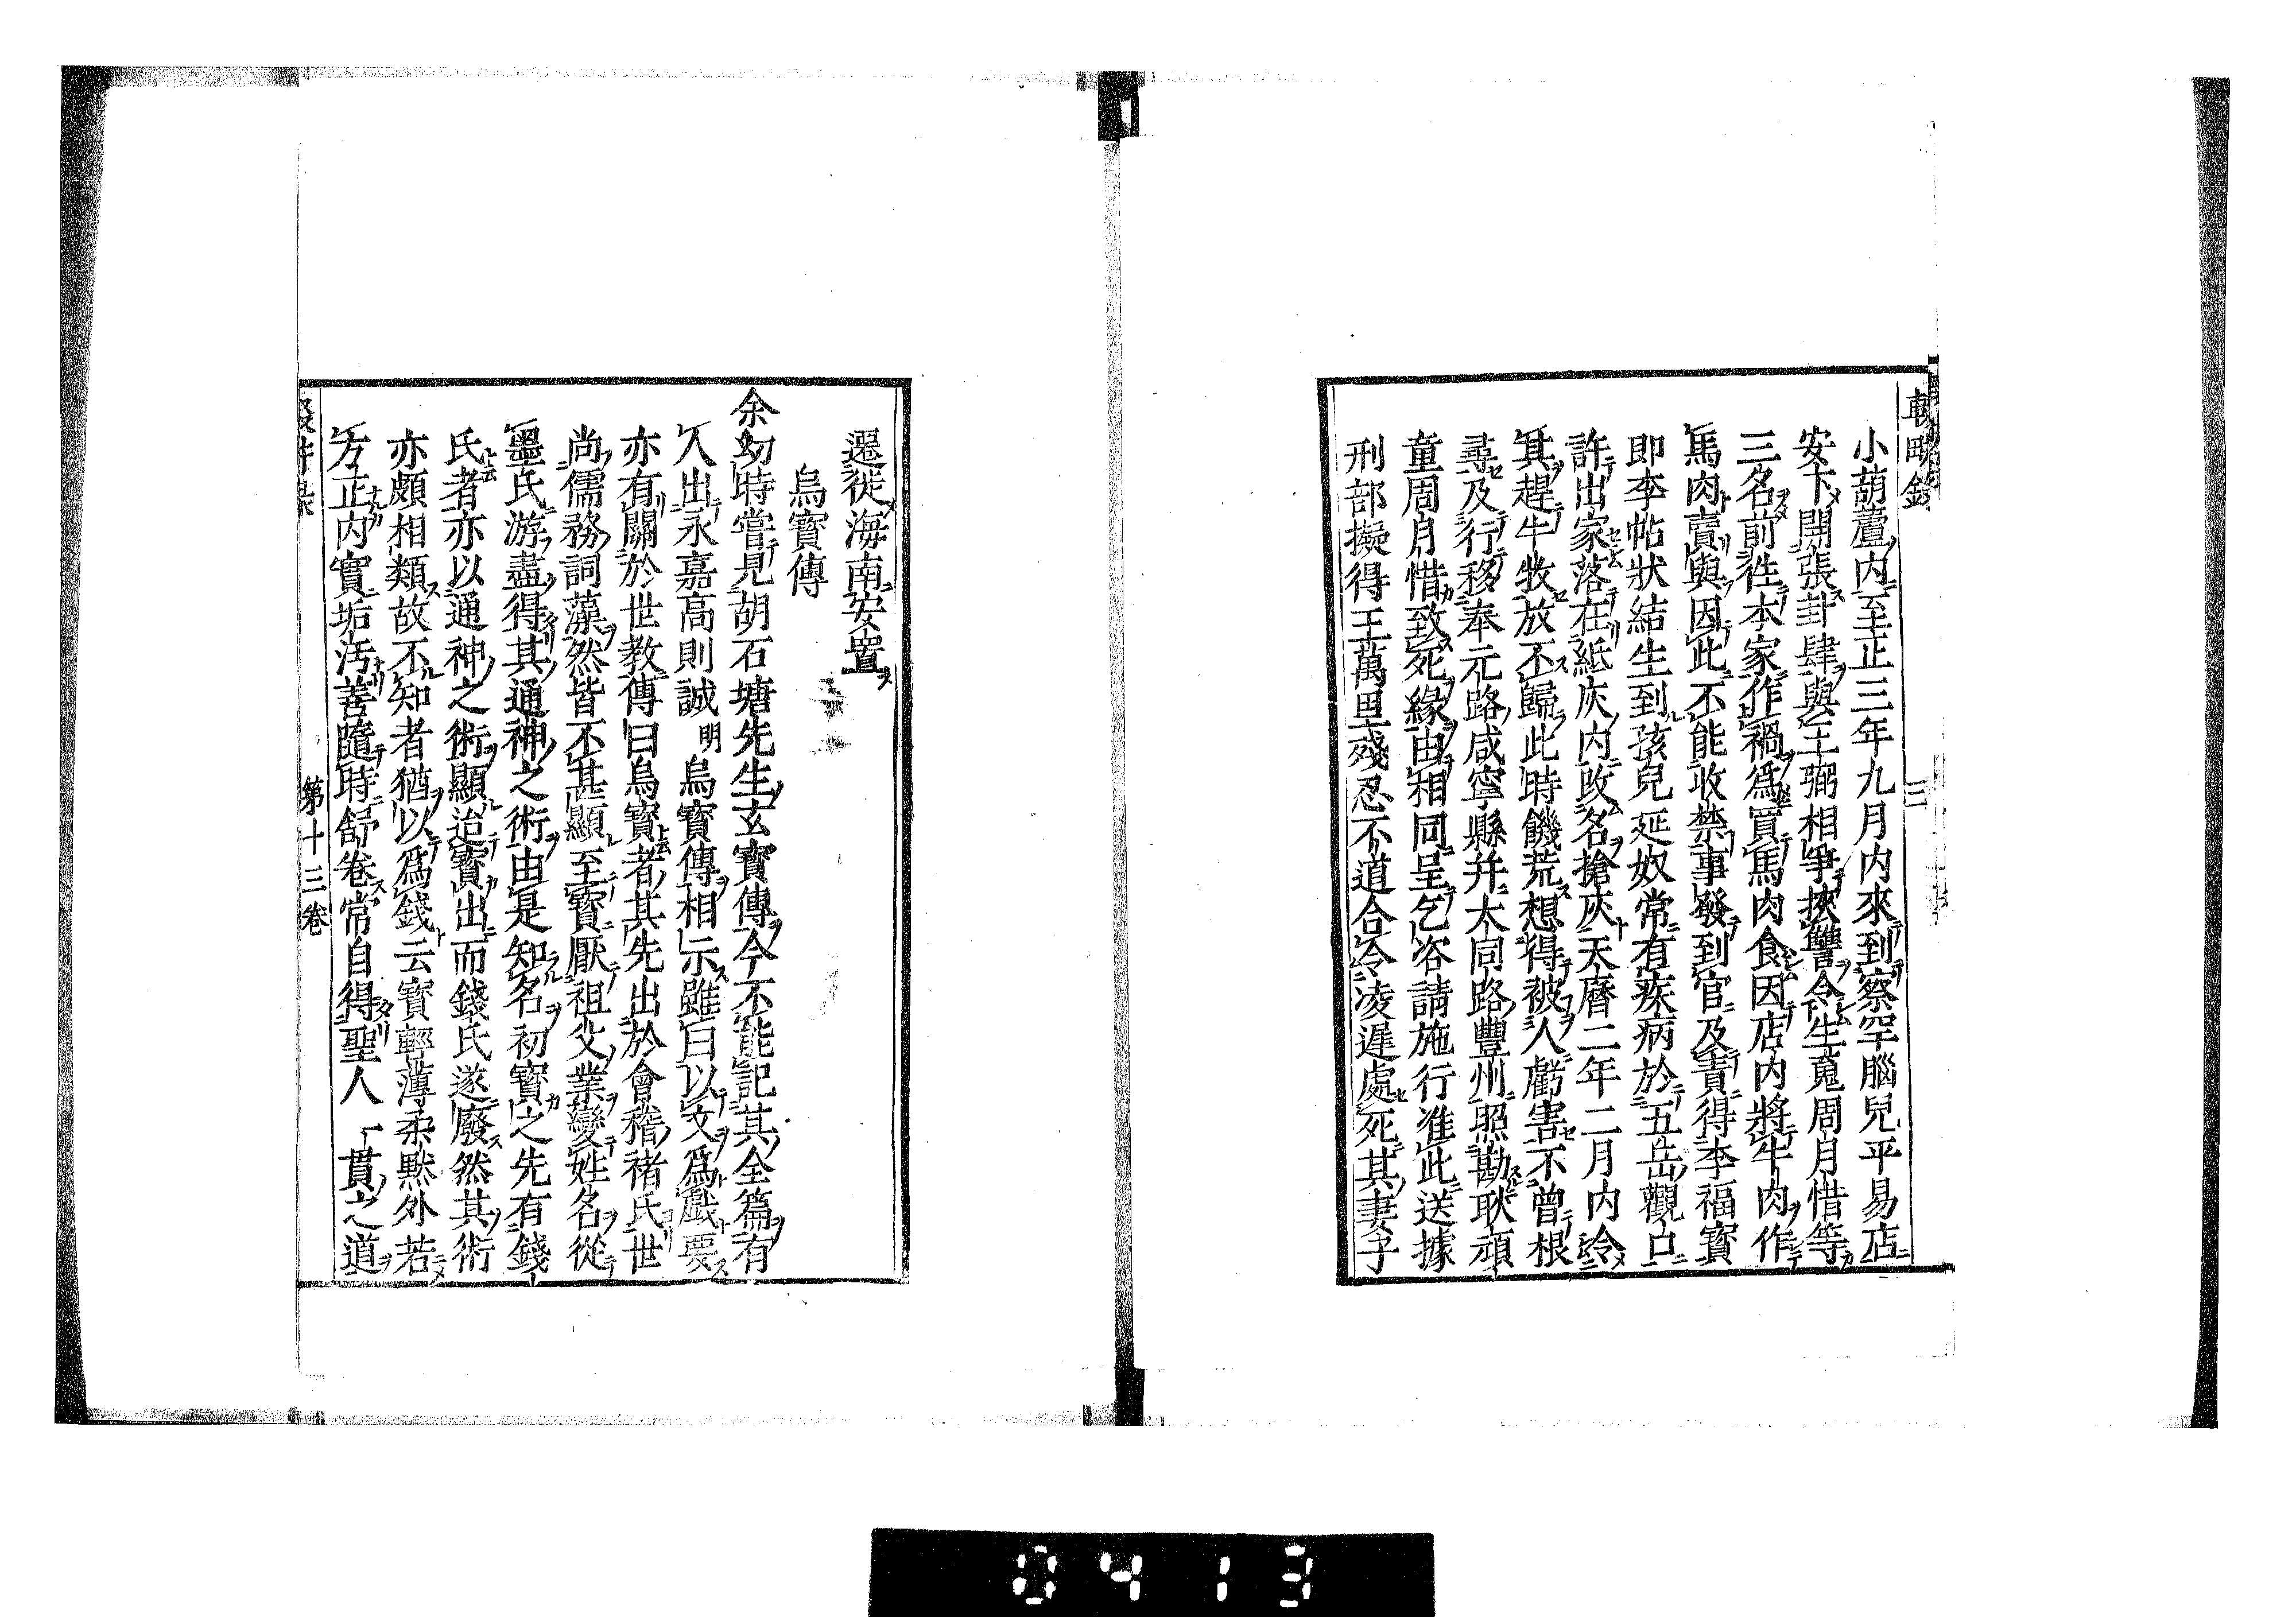 小葫蘆内至正三年九月内來到察罕腦兒平易店
安下開張卦肆與王弼相爭挾讐令生䰟周月惜等
三名前徃本家作禍爲買馬肉食因店内將牛肉作
馬肉賣與因此不能收禁事發到官及責得李福寶
即李帖狀結生到孩兒延奴常有疾病於五岳觀口
許出家落在紙灰内改名搶灰天曆二年二月内令
其趕牛牧放不歸此時饑荒想得被人虧害不曾根
尋及行移奉元路咸寧縣并大同路豐州照勘耿頑
童周月惜致死緣由相同呈乞咨請施行准此送據
刑部擬得王萬里殘忍不道合令凌遲處死其妻子
遷徙海南安置
烏寳傳
余幼時嘗見胡石塘先生玄寳傳今不能記其全篇有
人出永嘉高則誠明烏寳傳相示雖曰以文爲戲要
亦有關於世教傳曰烏寳者其先出於會稽褚氏世
尚儒務詞藻然皆不甚顯至寳厭祖父業變姓名從
墨氏游盡得其通神之術由是知名初寳之先有錢
氏者亦以通神之術顯迨寳出而錢氏遂廢然其術
亦頗相類故不知者猶以爲錢云寳輕薄柔黙外若
方正内實垢汚善隨時舒卷常自得聖人一貫之道
第十三卷
0413